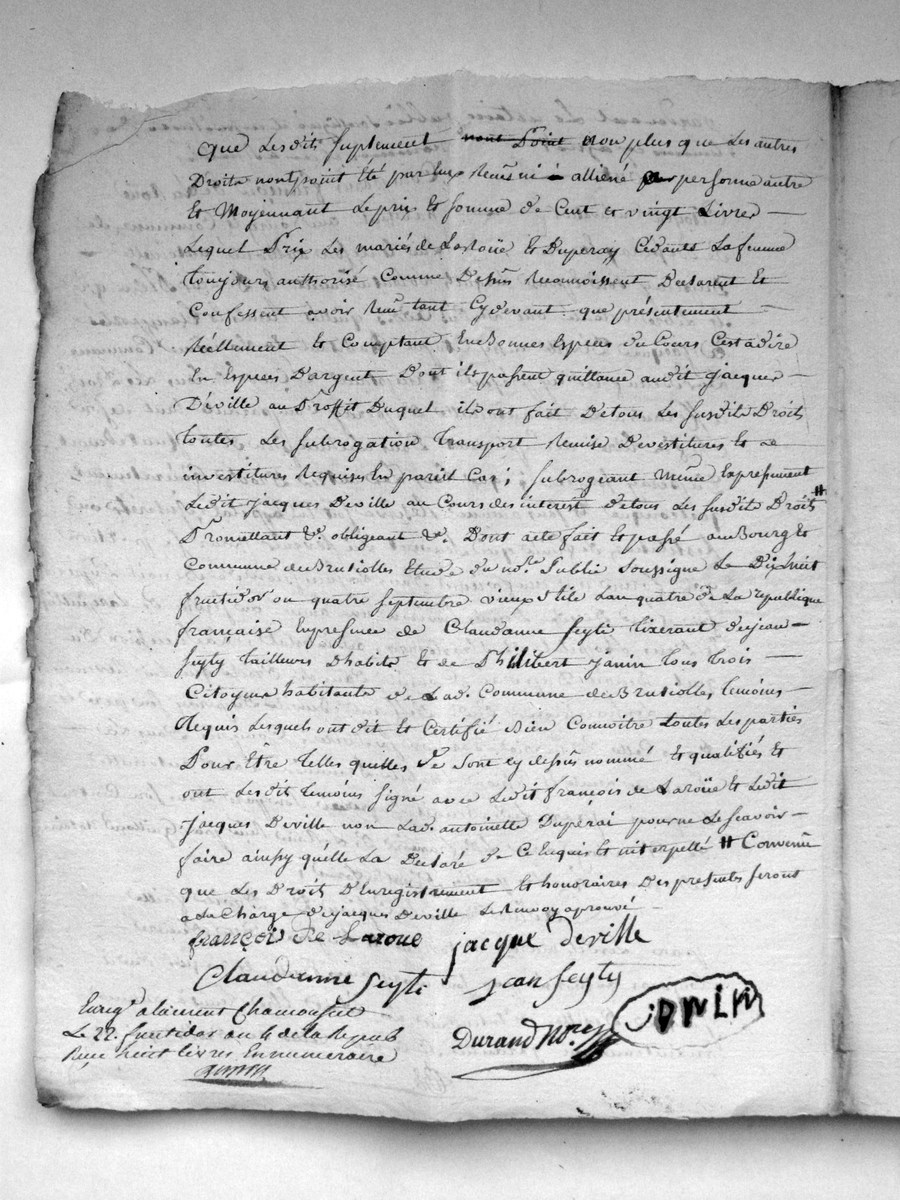 que lesdits suplement nont Point non plus que les autres
Droits nont point Été par Eux Recûs ni alliené per personne autre
Et Moyennant le prix Et somme de Cent et vingt Livres
Lequel Prix Les mariés de Laroüe Et Duperay Cédants La femme
toujours authorisé Comme Dessus Reconnoissent Declarent Et
Confessent avoir Recus tant Cydevant que présentement
Réellement Et Comptant En Bonnes Especes du Cours Cestadire
En Especes D'argent Dont ils passent quittance audit jacques
Déville au Proffit Duquel ils ont fait De tous Les susdits Droits
toutes Les subrogation transport Remise Devestitures Et
investitures Requises En pareil Cas; subrogeant Même Expressement
Ledit jacques Deville au Cours des interest De tous Les susdits Droits #
Promettant &. obligeant &. Dont acte fait Et passé au Bourg Et
Commune de Brusiolles Etude du nore. Public soussigné Le Dixhuit
fructidor ou quatre septembre vieux stile Lan quatre De La republique
française En presence de Claudanne Seyti tixerant de jean
Seyty tailleurs Dhabits Et de Philibert janin tous trois
Citoyens habitants de Lade. Commune de Brusiolles temoins
Requis Lesquels ont dit Et Certifié Bien Connoitre toutes Les parties
Pour Être telles quelles se sont cy dessus nommé Et qualifiés Et
ont Lesdit temoins signé avec Ledit françois de Laroüe Et Ledit
jacques Deville non Lade. antoinette Dupérai pour ne Le scavoir
faire ainsy quelle La Declaré de Ce Requis Et interpellé # Convenû
que Les Droits D'Enregistrement Et honoraires Des presentes seront
a La Charge de jacques Deville Le Renvoy aprouvé
françois De Laroue jacque deville
Claudanne Seyti jean Seyty
Enregé a laurent Chamousset
Le 22. fructidor an 4 de la Repub
Reçu huit livres En numeraire
Durand Nore